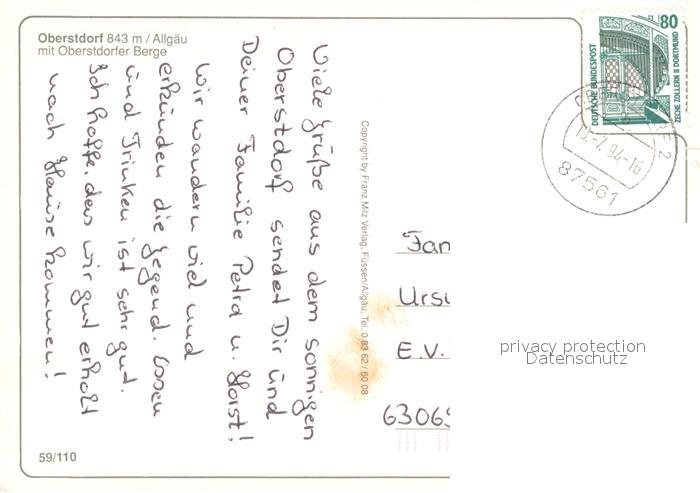 Oberstdorf 843 m / Allgäu
mit Oberstdorfer Berge
Viele Grüße aus dem sonnigen
Oberstdorf sendet Dir und
Deiner Familie Petra u. Horst!
Wir wandern viel und
erkunden die Gegend. Essen
und Trinken ist sehr gut.
Ich hoffe, dass wir gut erholt
nach Hause kommen!
59/110
Copyright by Franz Milz Verlag, Füssen/Allgäu, Tel. 0 83 62 / 60 08
80
DEUTSCHE BUNDESPOST
ZECHE ZOLLERN II DORTMUND
2
94-16
87561
Fan
Ursu
E.V.
6306
privacy protection
Datenschutz